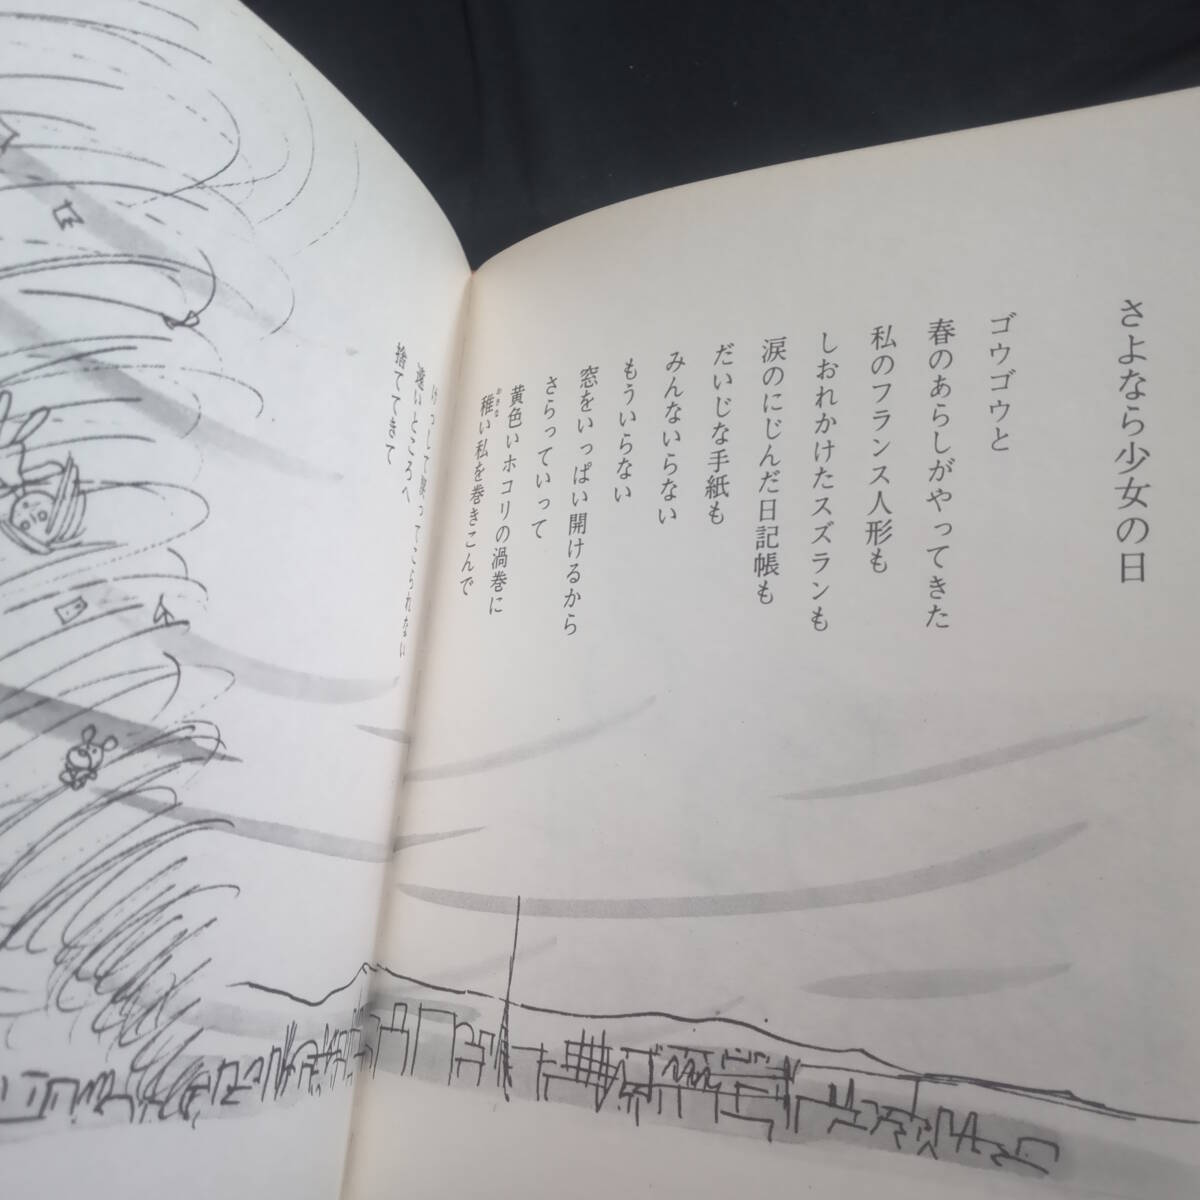 さよなら少女の日
ゴウゴウと
春のあらしがやってきた
私のフランス人形も
しおれかけたスズランも
涙のにじんだ日記帳も
だいじな手紙も
みんないらない
もういらない
窓をいっぱい開けるから
さらっていって
黄色いホコリの渦巻に
稚い私を巻きこんで
おさな
けっして戻ってこられない
遠いところへ
捨ててきて